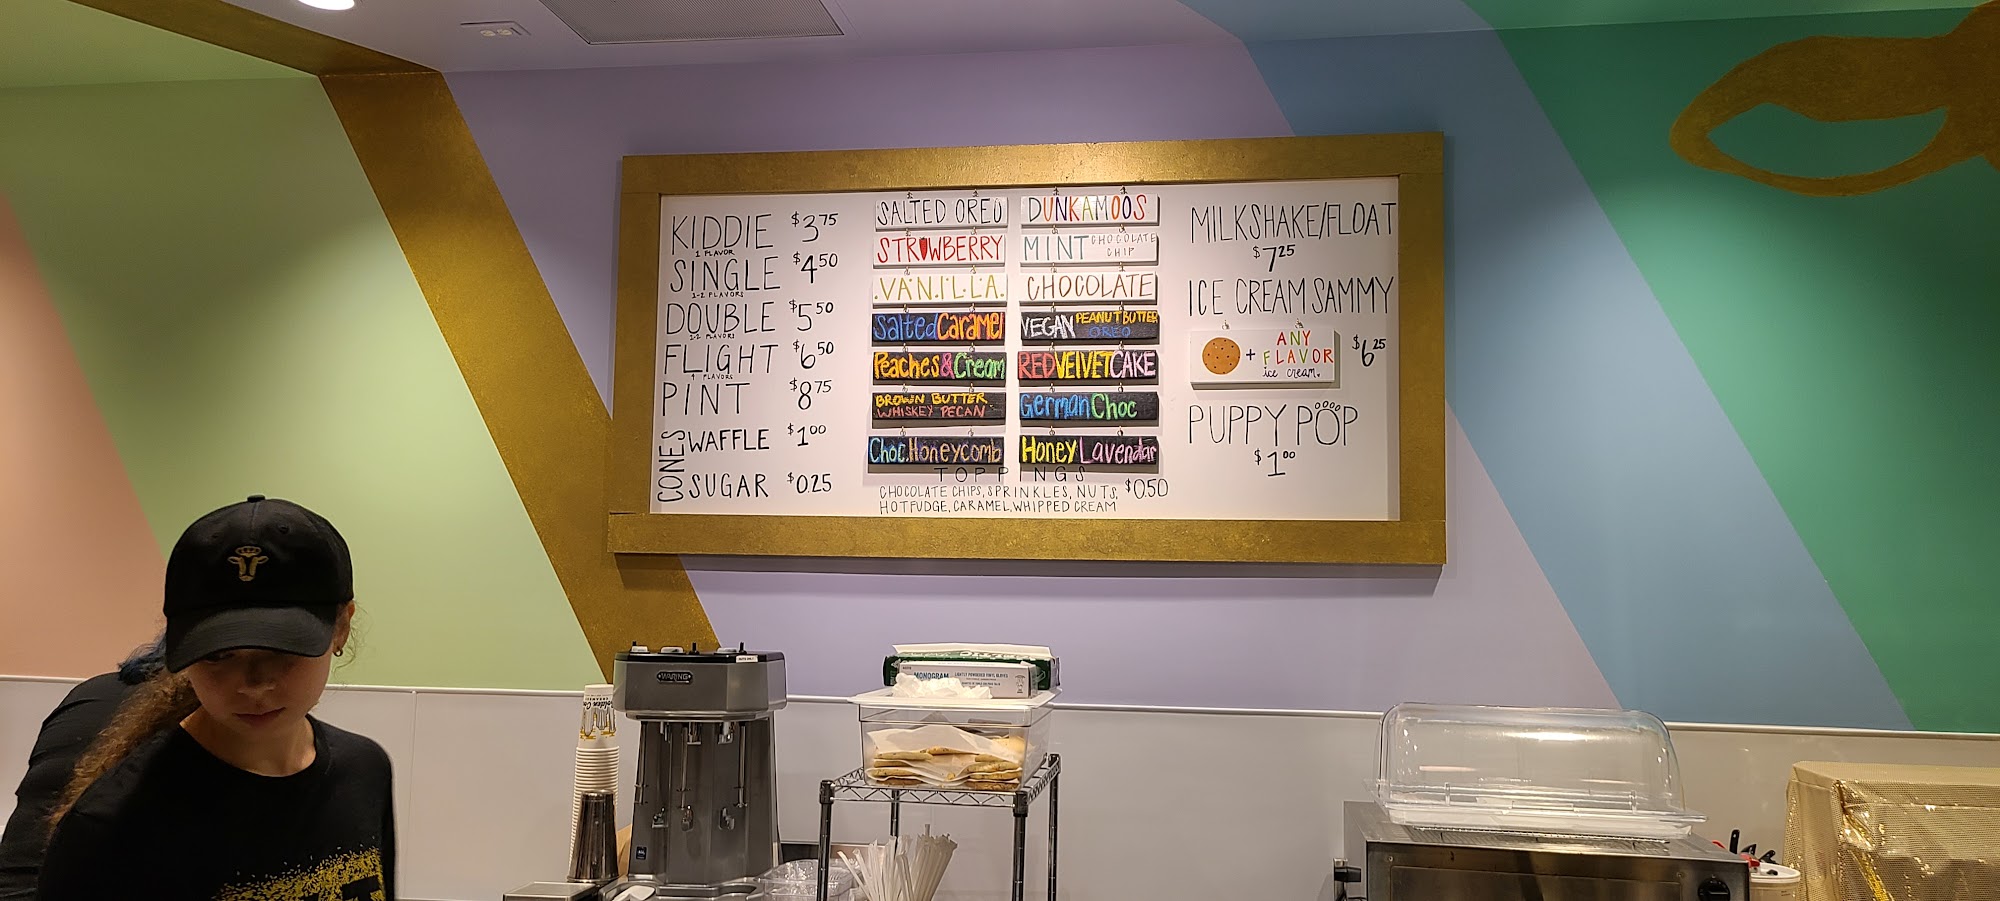 KIDDIE $3.75
1 FLAVOR
SINGLE $4.50
1-2 FLAVORS
DOUBLE $5.50
1-2 FLAVORS
FLIGHT $6.50
4 FLAVORS
PINT $8.75
CONES
WAFFLE $1.00
SUGAR $0.25
SALTED OREO
STRWBERRY
.V.A.N.I.L.L.A.
Salted Caramel
Peaches & Cream
BROWN BUTTER
WHISKEY PECAN
Choc. Honeycomb
DUNKAMOOS
MINT CHOCOLATE
CHIP
CHOCOLATE
VEGAN PEANUT BUTTER
OREO
RED VELVET CAKE
German Choc
Honey Lavendar
TOPPINGS
CHOCOLATE CHIPS, SPRINKLES, NUTS, $0.50
HOT FUDGE, CARAMEL, WHIPPED CREAM
MILKSHAKE/FLOAT
$7.25
ICE CREAM SAMMY
+ ANY
FLAVOR
ice cream.
$6.25
PUPPY POP
$1.00
WARING
MONOGRAM